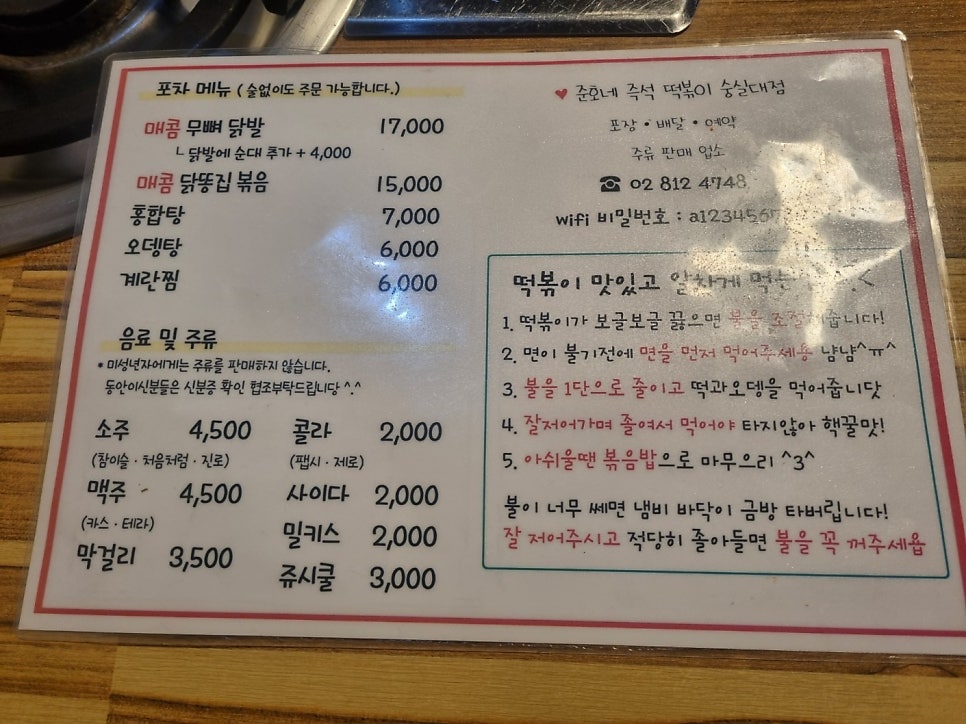 포차 메뉴 ( 술없이도 주문 가능합니다.)
매콤 무뼈 닭발 17,000
ㄴ 닭발에 순대 추가 + 4,000
매콤 닭똥집 볶음 15,000
홍합탕 7,000
오뎅탕 6,000
계란찜 6,000
음료 및 주류
* 미성년자에게는 주류를 판매하지 않습니다.
동안이신분들은 신분증 확인 협조부탁드립니당 ^.^
소주 4,500
(참이슬 · 처음처럼 · 진로)
맥주 4,500
(카스 · 테라)
막걸리 3,500
콜라 2,000
(팹시 · 제로)
사이다 2,000
밀키스 2,000
쥬시쿨 3,000
♥ 준호네 즉석 떡볶이 숭실대점
포장 • 배달 • 예약
주류 판매 업소
☎ 02 812 4748
wifi 비밀번호 :
떡볶이 맛있고 알차게 먹는
1. 떡볶이가 보글보글 끓으면 불을 조절해줍니다!
2. 면이 불기전에 면을 먼저 먹어주세용 냠냠^ㅠ^
3. 불을 1단으로 줄이고 떡과오뎅을 먹어줍니닷
4. 잘저어가며 졸여서 먹어야 타지않아 핵꿀맛!
5. 아쉬울땐 볶음밥으로 마무으리 ^3^
불이 너무 쎄면 냄비 바닥이 금방 타버립니다!
잘 저어주시고 적당히 졸아들면 불을 꼭 꺼주세욥